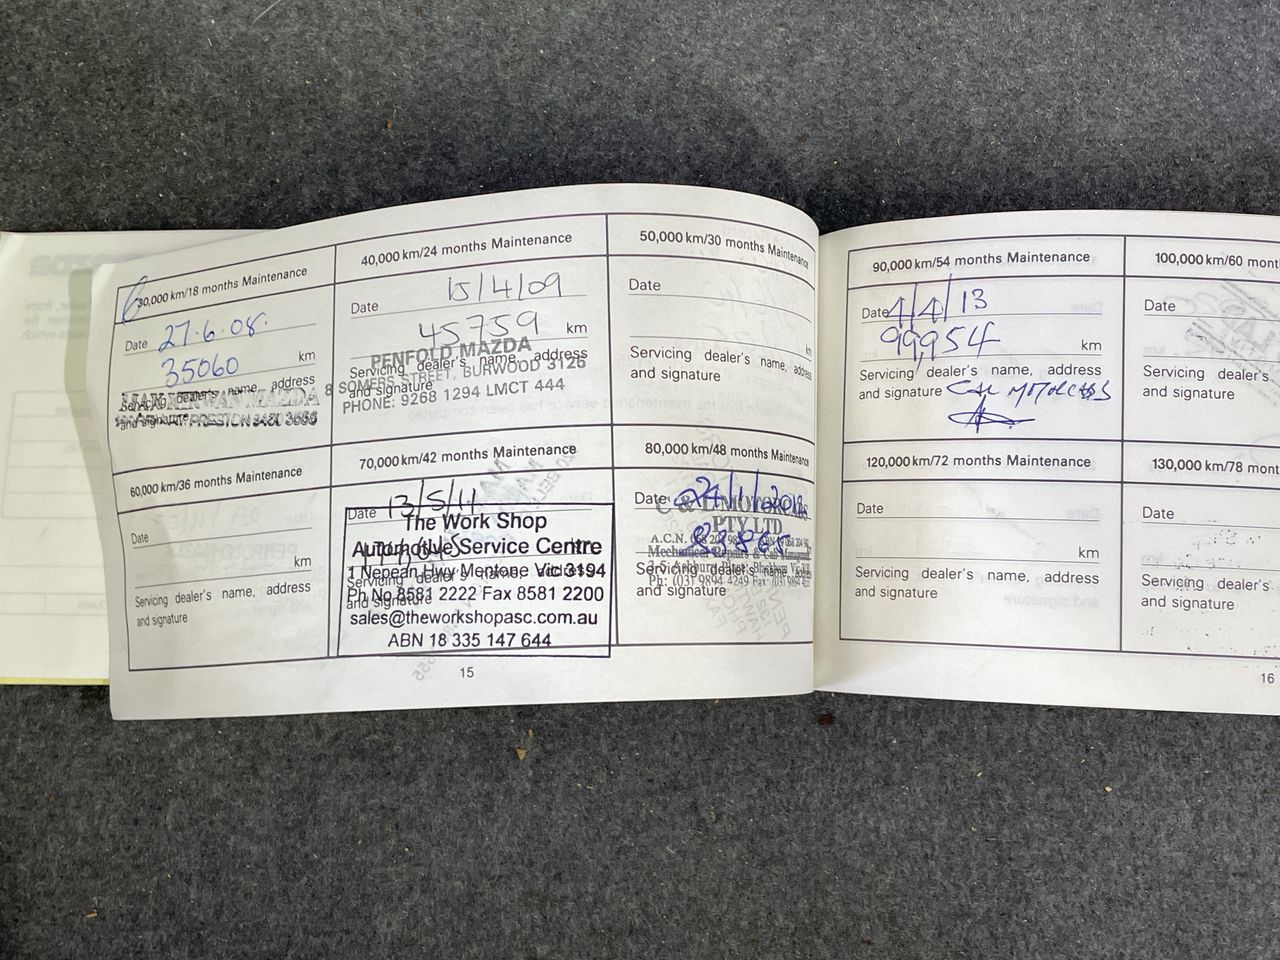 30,000 km/18 months Maintenance
Date 27.6.08.
35060 km
Servicing dealer's name, address
and signature
MAZDA
PRESTON
40,000 km/24 months Maintenance
Date 15/4/09
45759 km
Servicing dealer's name, address
and signature
PENFOLD MAZDA
8 SOMERS STREET, BURWOOD 3126
PHONE: 9268 1294 LMCT 444
50,000 km/30 months Maintenance
Date
km
Servicing dealer's name, address
and signature
60,000 km/36 months Maintenance
Date
km
Servicing dealer's name, address
and signature
70,000 km/42 months Maintenance
Date 13/5/11
km
Servicing dealer's name, address
and signature
The Work Shop
Automotive Service Centre
1 Nepean Hwy Mentone Vic 3194
Ph No 8581 2222 Fax 8581 2200
sales@theworkshopasc.com.au
ABN 18 335 147 644
80,000 km/48 months Maintenance
Date 24/1/2012
Servicing dealer's name
and signature
MOTORS
PTY LTD
A.C.N.
Mechanical Repairs &
Ph: (03) 9894 4249 Fax: (03)
15
90,000 km/54 months Maintenance
Date 4/4/13
99,954 km
Servicing dealer's name, address
and signature C&L MOTORS
100,000 km/60
Date
Servicing dealer's
and signature
120,000 km/72 months Maintenance
Date
km
Servicing dealer's name, address
and signature
130,000 km/78 mont
Date
Servicing dealer's
and signature
16